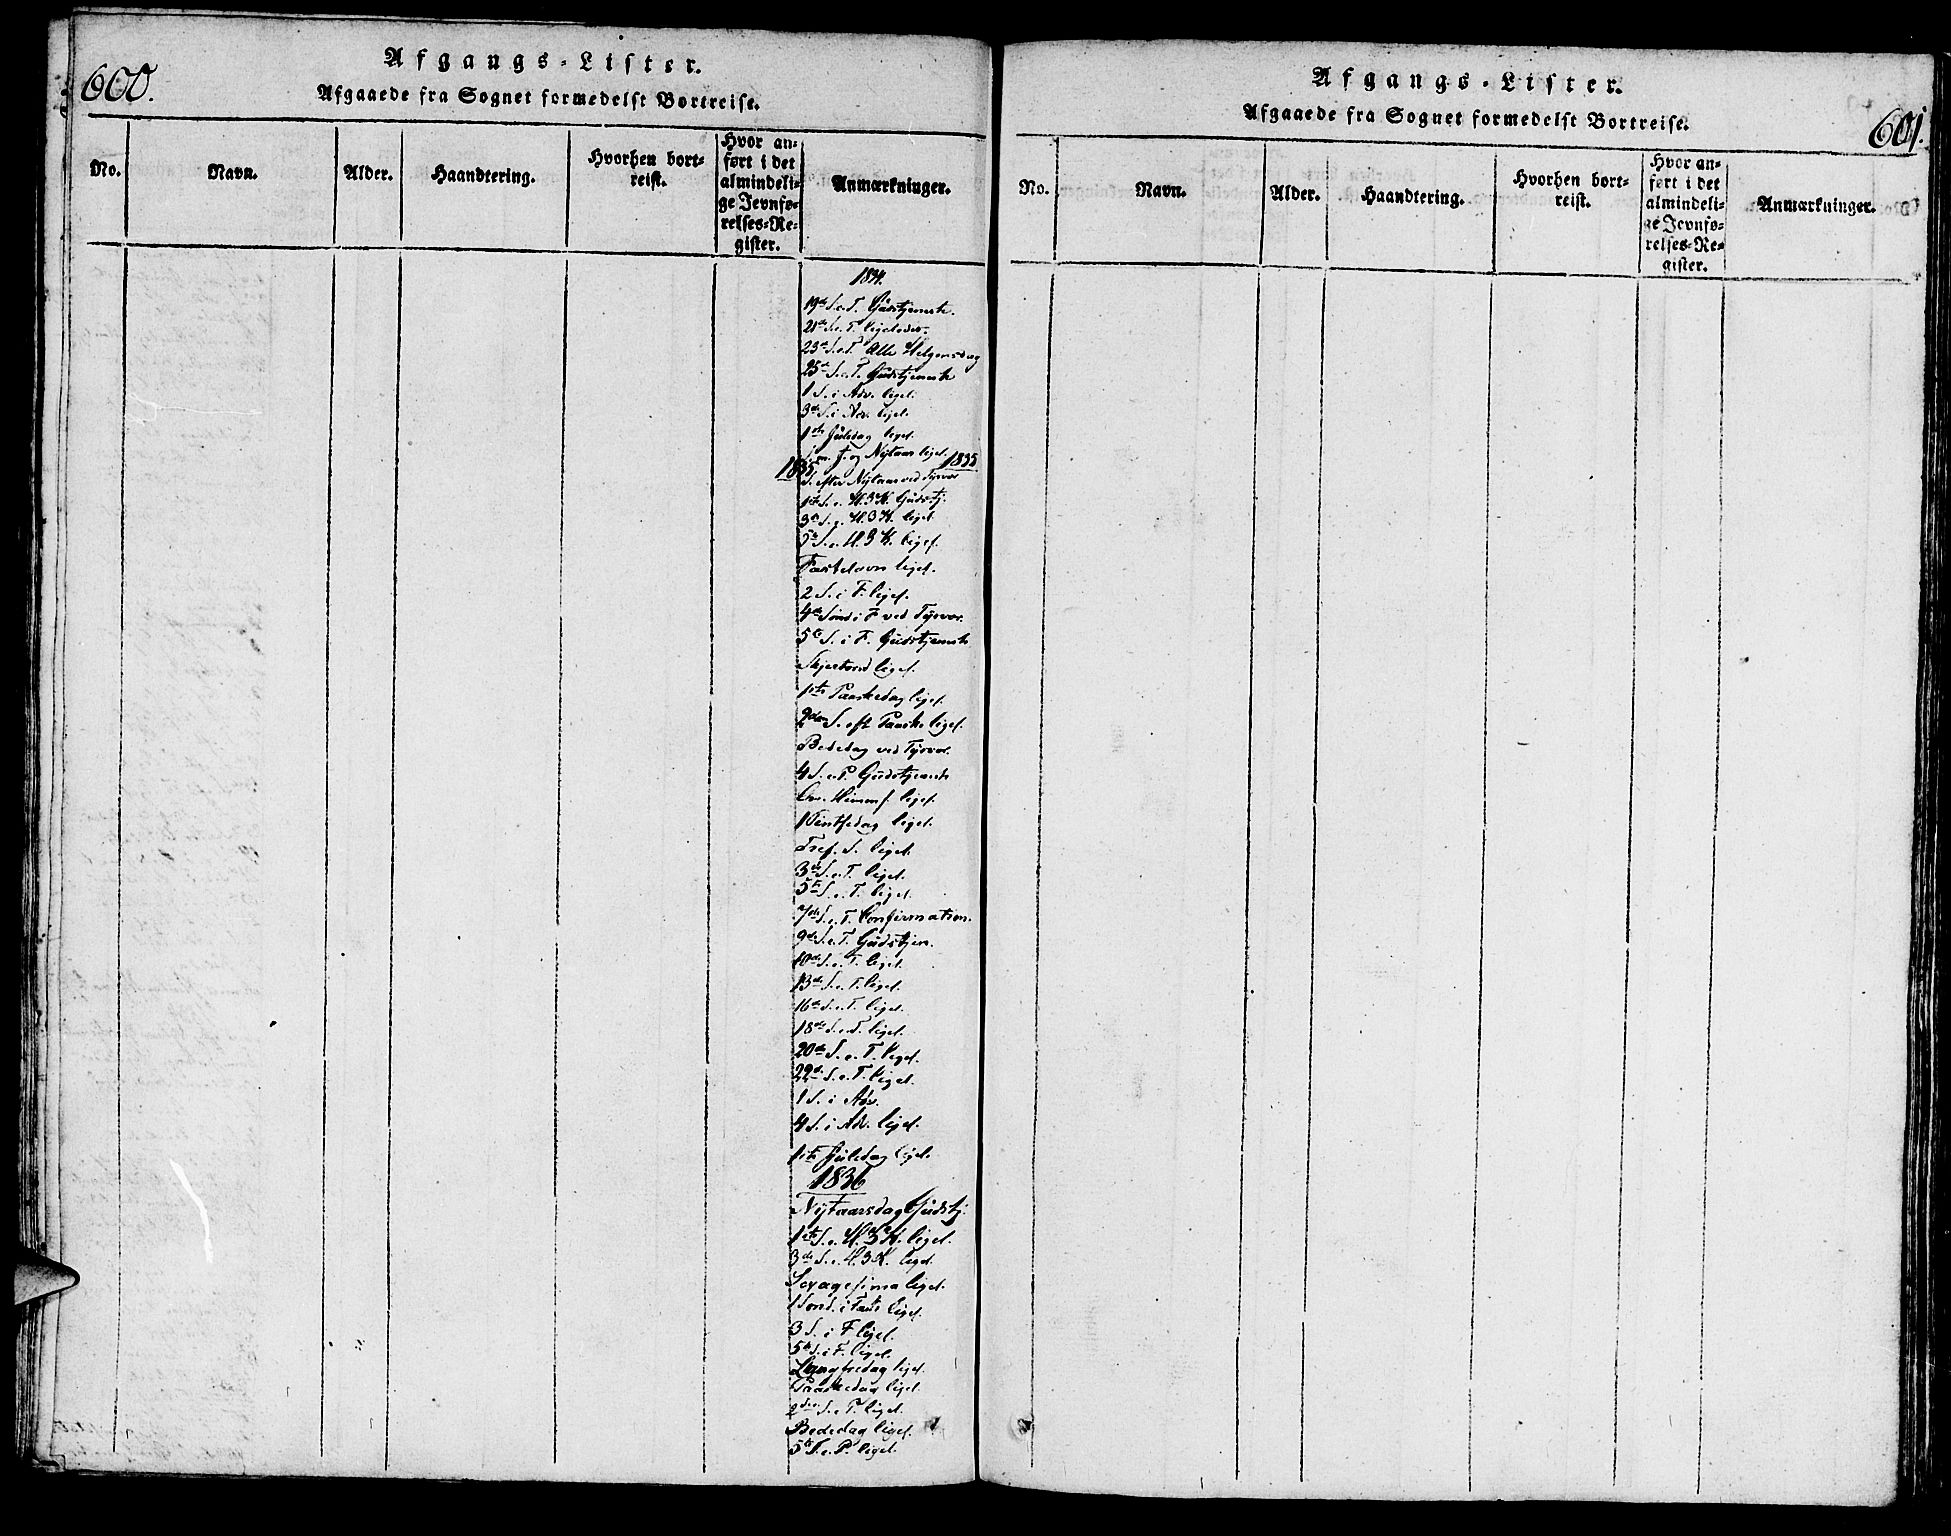 600.
Afgangs-Lister.
Afgaaede fra Sognet formedelst Bortreise.
No.
Navn.
Alder.
Haandtering.
Hvorhen bort-
reist.
Hvor an-
ført i det
almindeli-
ge Jevnfø-
relses-Re-
gister.
Anmærkninger.
1834.
19de S. e. T. Gudstjeneste.
21de S. e. T. ligeledes.
23de S. e. T. Alle Helgensdag
25de S. e. T. Gudstjeneste
1 S. i Adv. ligel.
3de S. i Adv. ligel.
1ste Juledag ligel.
S. m. J. og Nytaar ligel. 1835
1835
S. efter Nytaar ved Tysvær
1ste S. e. H. 3 K. Gudstj.
3de S. e. H. 3 K. ligel.
5te S. e. H. 3 K. ligel.
Fastelavn ligel.
2 S. i F. ligel.
4de Sønd i F ved Tysvær.
5te S. i F. Gudstjeneste
Skjertorsd ligel.
1ste Paaskedag ligel.
2den S. eft Paaske ligel.
Bededag ved Tysvær.
4 S. e. P. Gudstjeneste
Chr. Himmf. ligel.
1 Pintsedag ligel.
Tref. S. ligel.
3de S. e. T. ligel.
5te S. e. T. ligel.
7de S. e. T. Confirmation.
9de S. e. T. Gudstjen.
10de S. e. T. ligel.
13de S. e. T. ligel.
16de S. e. T. ligel.
18de S. e. T. ligel.
20de S. e. T. ligel.
22de S. e. T. ligel.
1 S. i Adv.
4 S. i Adv. ligel.
1ste Juledag ligel.
1836
Nytaarsdag Gudstj.
1ste S. e. H. 3 K. ligel.
3de S. e. H. 3 K. ligel.
Sexagesima ligel.
1 Sønd. i Faste ligel.
3 S. i F ligel.
5te S. i F. ligel.
Langfredag ligel.
Paaskedag ligel.
2den S. e. P. ligel.
Bededag ligel.
5te S. e. P. ligel.
Afgangs-Lister.
Afgaaede fra Sognet formedelst Bortreise.
601.
No.
Navn.
Alder.
Haandtering.
Hvorhen bort-
reist.
Hvor an-
ført i det
almindeli-
ge Jevnfø-
relses-Re-
gister.
Anmærkninger.